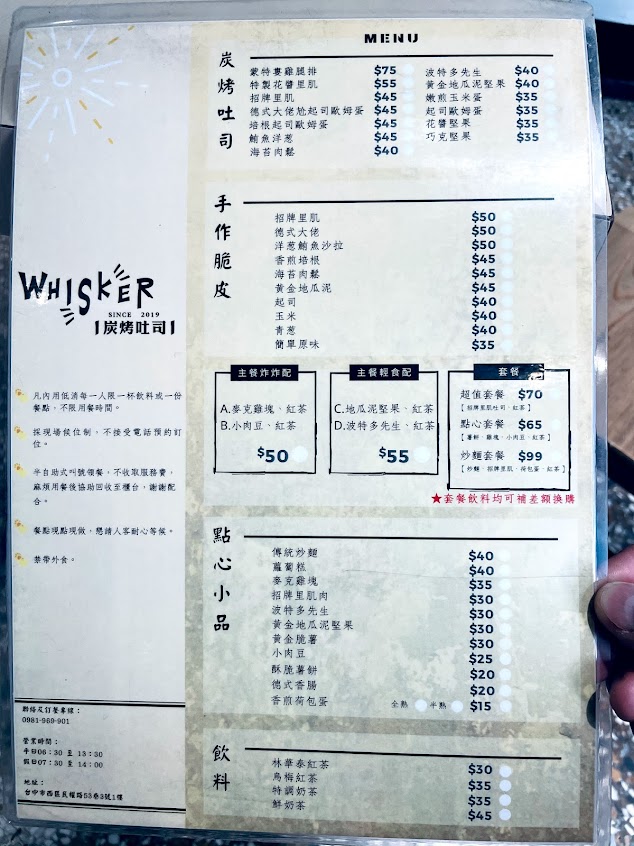 MENU
炭烤吐司
蒙特婁雞腿排 $75
特製花醬里肌 $55
招牌里肌 $45
德式大佬尬起司歐姆蛋 $45
培根起司歐姆蛋 $45
鮪魚洋蔥 $45
海苔肉鬆 $40
波特多先生 $40
黃金地瓜泥堅果 $40
嫩煎玉米蛋 $35
起司歐姆蛋 $35
花醬堅果 $35
巧克堅果 $35
手作脆皮
招牌里肌 $50
德式大佬 $50
洋蔥鮪魚沙拉 $50
香煎培根 $45
海苔肉鬆 $45
黃金地瓜泥 $45
起司 $40
玉米 $40
青蔥 $40
簡單原味 $35
WHISKER
SINCE 2019
炭烤吐司
凡內用低消每一人限一杯飲料或一份
餐點，不限用餐時間。
採現場候位制、不接受電話預約訂
位。
半自助式叫號領餐，不收取服務費，
麻煩用餐後協助回收至櫃台，謝謝配
合。
餐點現點現做，懇請人客耐心等候。
禁帶外食。
主餐炸炸配
A.麥克雞塊、紅茶
B.小肉豆、紅茶
$50
主餐輕食配
C.地瓜泥堅果、紅茶
D.波特多先生、紅茶
$55
套餐
超值套餐 $70
【招牌里肌吐司、紅茶】
點心套餐 $65
【薯餅、雞塊、小肉豆、紅茶】
炒麵套餐 $99
【炒麵、招牌里肌、荷包蛋、紅茶】
★套餐飲料均可補差額換購
點心小品
傳統炒麵 $40
蘿蔔糕 $40
麥克雞塊 $35
招牌里肌肉 $30
波特多先生 $30
黃金地瓜泥堅果 $30
黃金脆薯 $30
小肉豆 $25
酥脆薯餅 $20
德式香腸 $20
香煎荷包蛋 全熟 半熟 $15
飲料
林華泰紅茶 $30
烏梅紅茶 $35
特調奶茶 $35
鮮奶茶 $45
聯絡及訂餐專線：
0981-969-901
營業時間：
平日06：30 至 13：30
假日07：30 至 14：00
地址：
台中市西區民權路53巷3號1樓